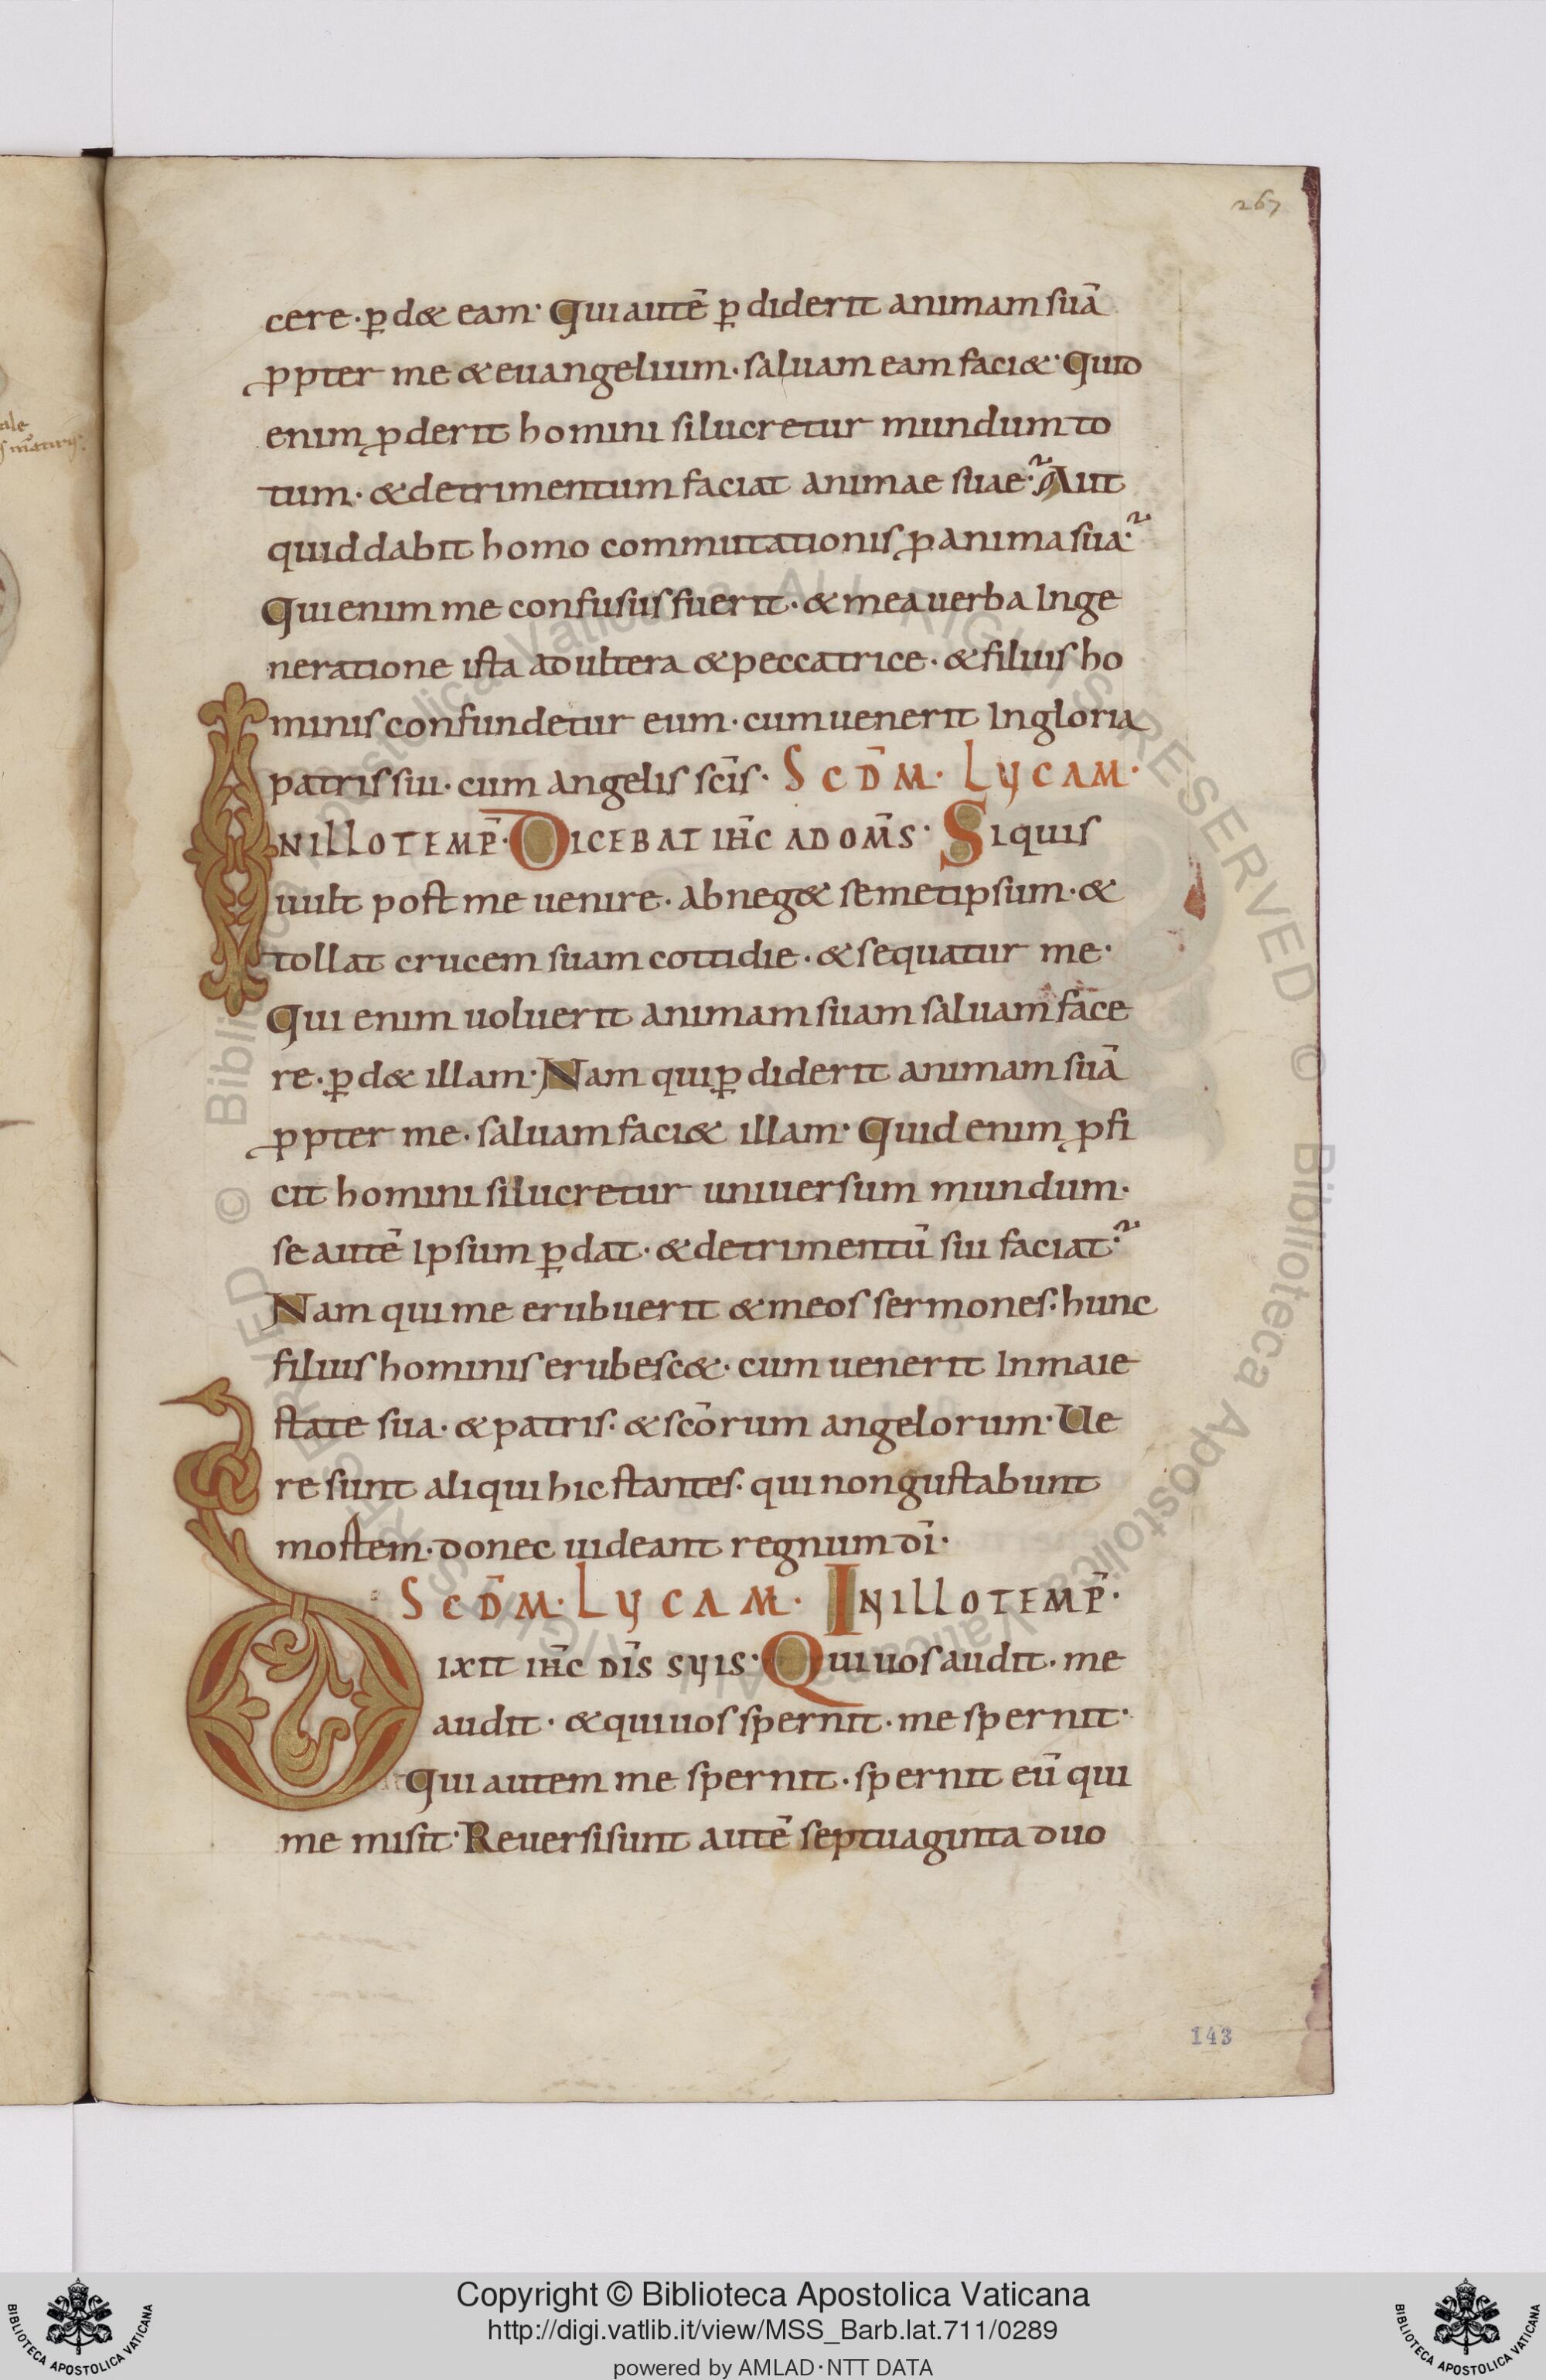 267
cere· ꝑd& eam· Qui autē ꝑdiderit animam suā
ꝓpter me & euangelium· saluam eam faci&· Quid
enim ꝓderit homini si lucretur mundum to
tum· & detrimentum faciat animae suae? Aut
quid dabit homo commutationis ꝓ anima sua?
Qui enim me confusus fuerit· & mea uerba In ge
neratione ista adultera & peccatrice· & filius ho
minis confundetur eum· cum uenerit In gloria
patris sui· cum angelis sc̄is· SCD̄M· LYCAM·
IN ILLO TEMP̄· DICEBAT IH̄C AD OM̄S· Si quis
uult post me uenire· abneg& semetipsum· &
tollat crucem suam cottidie· & sequatur me·
Qui enim uoluerit animam suam saluam face
re· ꝑd& illam· Nam qui ꝑdiderit animam suā
ꝓpter me· saluam faci& illam· Quid enim ꝓfi
cit homini si lucretur uniuersum mundum·
se autē Ipsum ꝑdat· & detrimentū sui faciat?
Nam qui me erubuerit & meos sermones· hunc
filius hominis erubesc&· cum uenerit In maie
state sua· & patris· & sc̄orum angelorum· Ue
re sunt aliqui hic stantes· qui non gustabunt
mortem· donec uideant regnum dī·
SCD̄M· LYCAM· IN ILLO TEMP̄·
DIXIT IH̄C DIS̄ SYIS· Qui uos audit· me
audit· & qui uos spernit· me spernit·
Qui autem me spernit· spernit eū qui
me misit· Reuersi sunt autē septuaginta duo
143
ale
© Biblioteca Apostolica Vaticana ALL RIGHTS RESERVED © Biblioteca Apostolica Vaticana ALL RIGHTS RESERVED
Copyright © Biblioteca Apostolica Vaticana
http://digi.vatlib.it/view/MSS_Barb.lat.711/0289
powered by AMLAD·NTT DATA
BIBLIOTECA APOSTOLICA VATICANA
BIBLIOTECA APOSTOLICA VATICANA